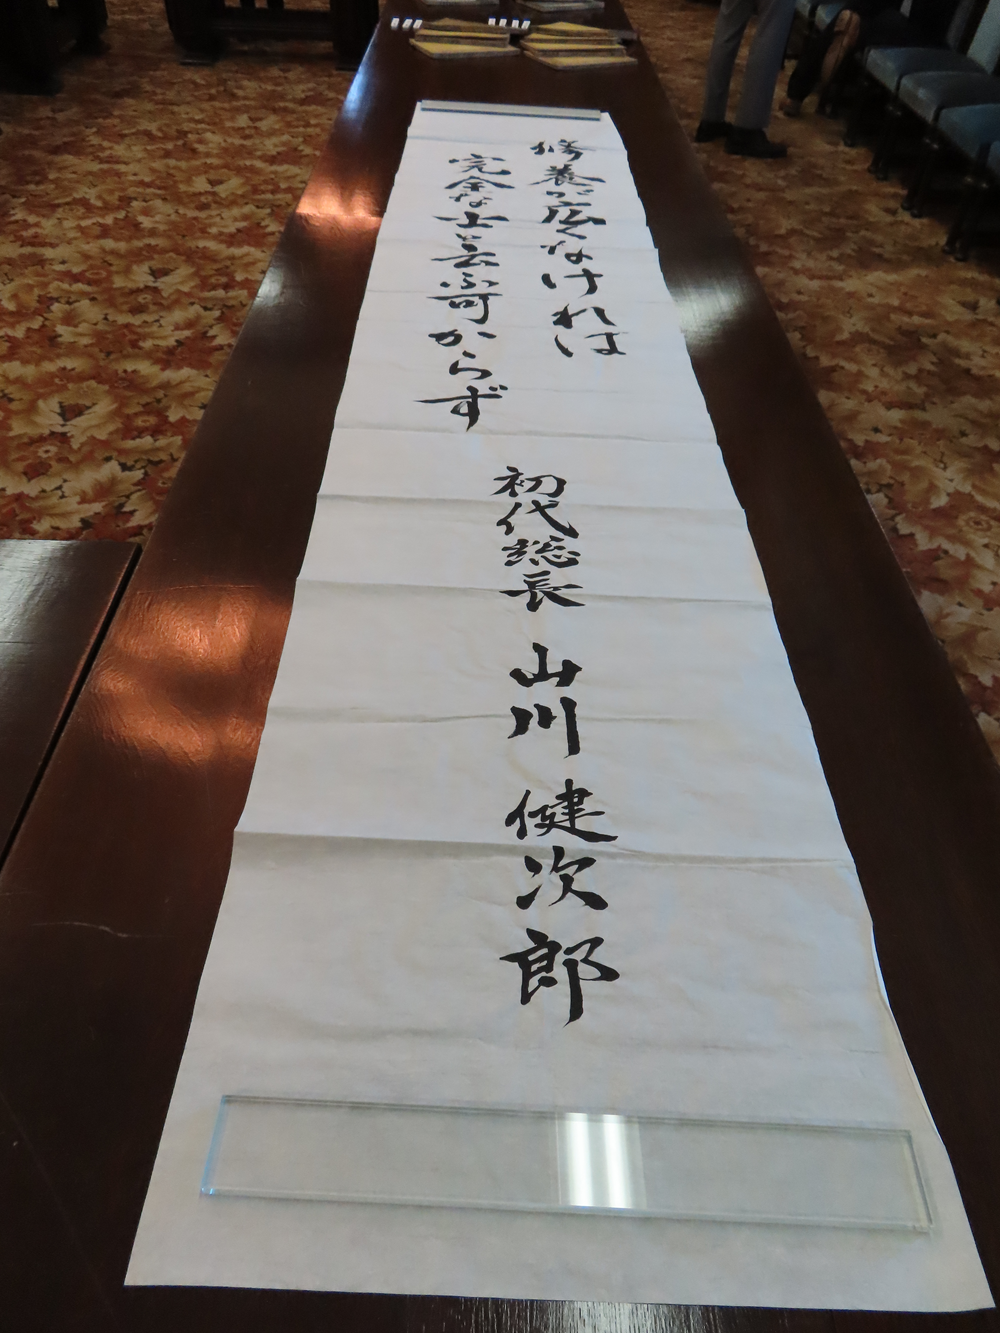 修養が広くなければ
完全な士と云ふ可からず
初代総長 山川 健次郎